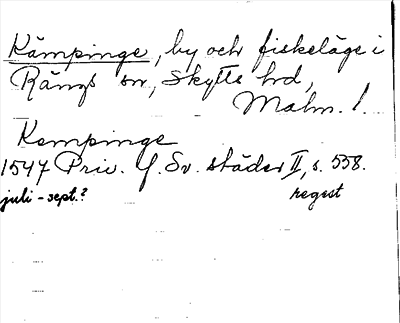 Kämpinge, by och fiskeläge i
Rängs sn, Skytts hd,
Malm. l.
Kempinge
1547 Priv. f. Sv. städer II, s. 558.
juli - sept.? regest